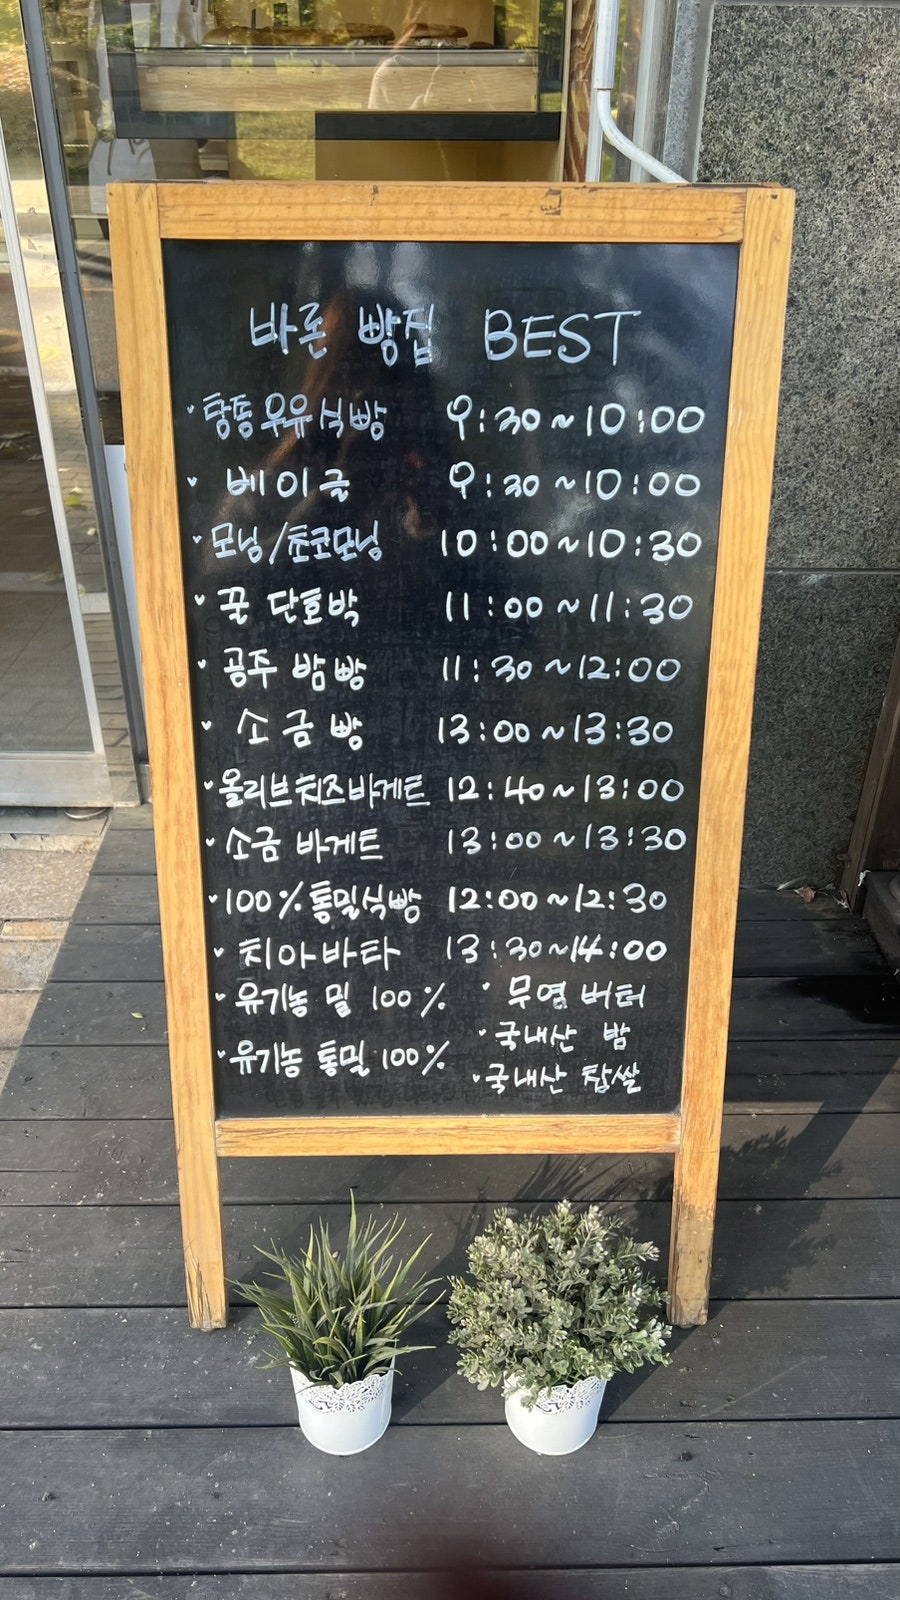 바른 빵집 BEST
탕종우유식빵 9:30~10:00
베이글 9:30~10:00
모닝/초코모닝 10:00~10:30
꿀 단호박 11:00~11:30
공주 밤빵 11:30~12:00
소금빵 13:00~13:30
올리브치즈바게트 12:40~13:00
소금 바게트 13:00~13:30
100%통밀식빵 12:00~12:30
치아바타 13:30~14:00
유기농 밀 100%
유기농 통밀 100%
무염 버터
국내산 밤
국내산 찹쌀